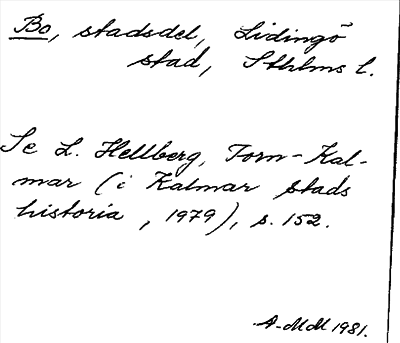 Bo, stadsdel, Lidingö
stad, Sthlms l.
Se L. Hellberg, Forn-Kal-
mar (i Kalmar stads
historia, 1979), s. 152.
A-MM 1981.